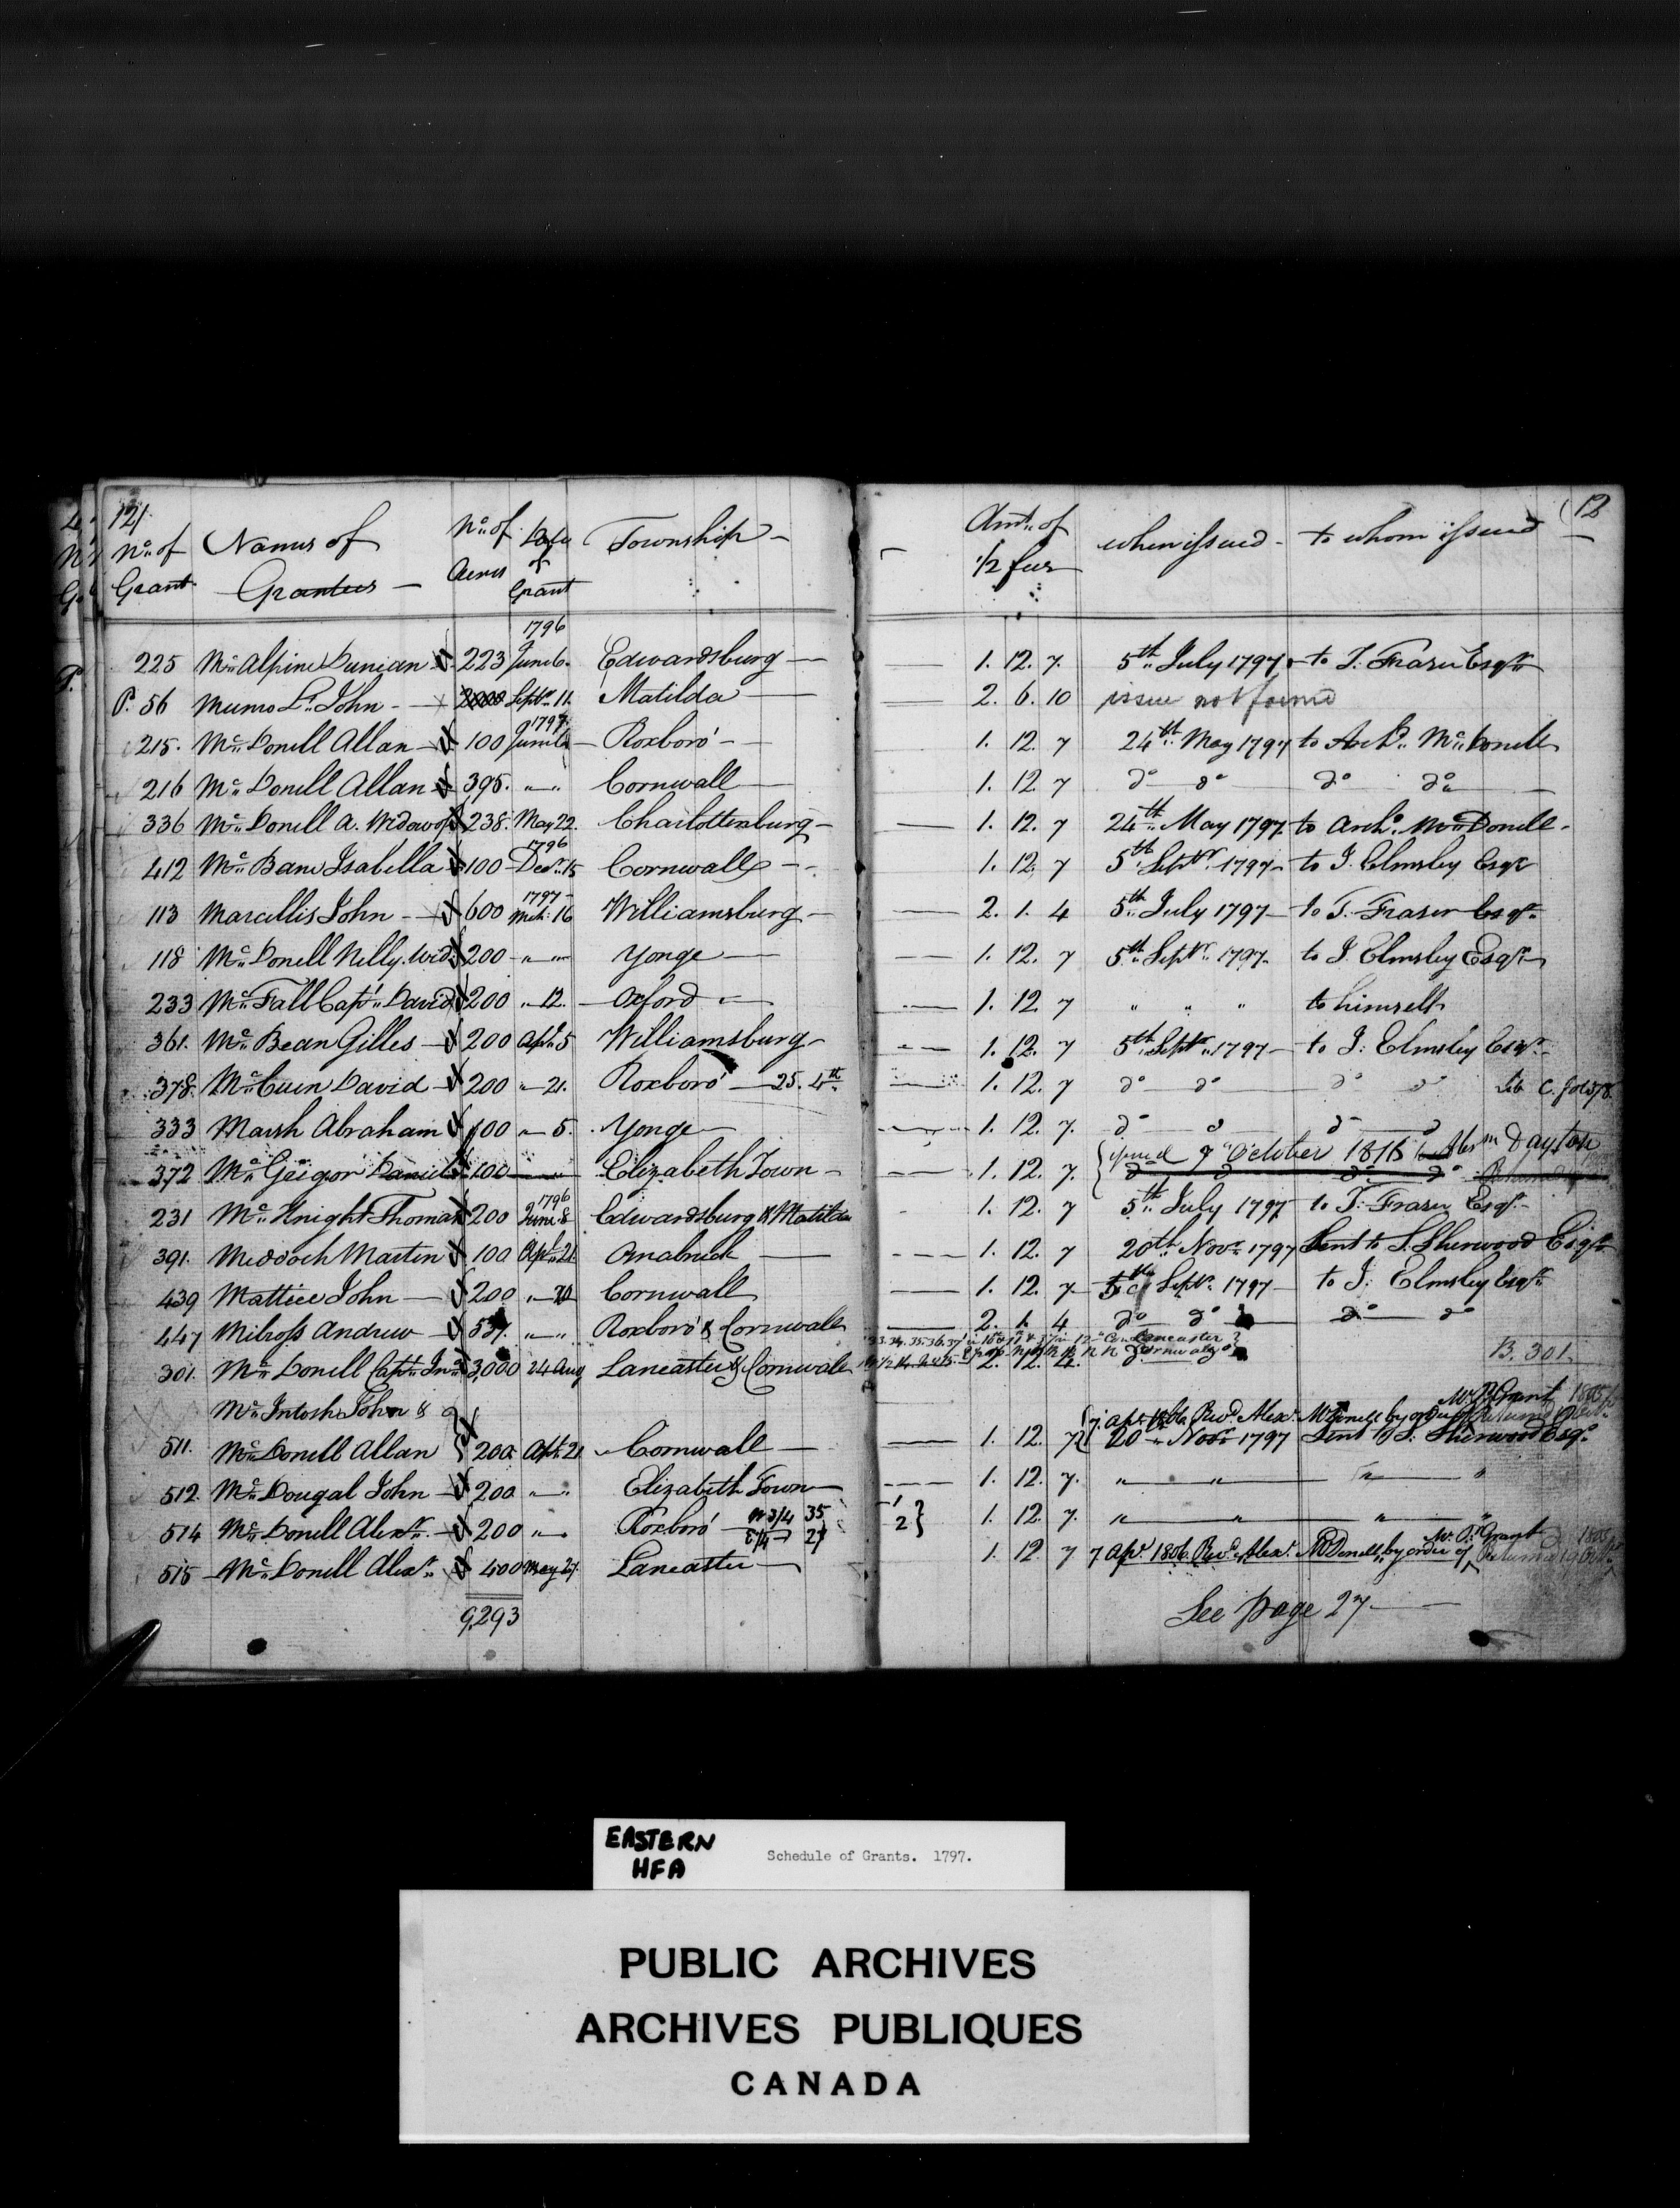 12/.
No. of Grant Names of Grantees — No. of Acres Date of Grant Township —
Amt. of 1/2 fees when issued - to whom issued (12
225 Mc Alpine Duncan 223 1796 June 6. Edwardsburg — 1. 12. 7. 5th July 1797 to T. Fraser Esqr
P. 56 Munro Lt. John - 2000 Septr 11. Matilda — 2. 6. 10 issue not found
215. Mc Donell Allan 100 1797 June 6 Roxboro' - 1. 12. 7 24th May 1797 to Archd. Mc Donell
216 Mc Donell Allan 395. " — " Cornwall — 1. 12. 7 do do do do
336 Mc Donell A. Widow of 238. May 22. Charlottenburg - 1. 12. 7 24th May 1797 to Archd. Mc Donell -
412 Mc Bane Isabella 100 1796 Decr. 15 Cornwall - 1. 12. 7 5th Septr. 1797 - to J. Elmsley Esqr
113 Marcellis John - 600 1797 - Mch. 16 Williamsburg - 2. 1. 4 5th July 1797 - to T. Fraser Esqr.
118 Mc Donell Nelly. Wid. 200 - " — Yonge — 1. 12. 7 5th Septr. 1797. to J. Elmsley Esqr.
233 Mc Fall Capt. David 200 " 12. Oxford — 1. 12. 7 " " " to himself
361. Mc Bean Gilles — 200 Apl. 5 Williamsburg - 1. 12. 7 5th Septr. 1797 — to J. Elmsley Esqr.
378. Mc Cuen David — 200 " — 21. Roxboro' — 25. 4th 1. 12. 7 do do do do Lib C. fol 378
333 Marsh Abraham 100 " — 5. Yonge — 1. 12. 7. do do do do
372 Mc Geigor Daniel 100 — " Elizabeth Town - 1. 12. 7. { issued 9 October 1816 to Abrm Dayton
do do do do
231 Mc Knight Thomas 200 1796 June 8 Edwardsburg & Matilda 1. 12. 7 5th July 1797 to T. Fraser Esqr. -
391. Middoch Martin 100 Apl. 21 Osnabruck — 1. 12. 7 20th Novr. 1797 Sent to S. Sherwood Esqr
439 Mattice John — 200 " — 20 Cornwall 1. 12. 7 - 5th Septr. 1797 — to J. Elmsley Esqr.
447 Milross Andrew — 537. " — " Roxboro' & Cornwall 2. 1. 4 do do do do
33. 34. 35. 36. 37 in 12 Con. Lancaster
301. Mc Donell Capt. Jno. 3,000 24 Aug Lancaster & Cornwall 2. 12. Cornwall B. 301.
Mc Intosh John &
Mr. R. Grant 1805
{ 7. Apr. 1806 Revd. Alexr. McDonell by order of Returned
511. Mc Donell Allan } 200 Apl. 21 Cornwall — 1. 12. 7 20th Novr 1797 Sent to S. Sherwood Esqr.
512. Mc Dougal John — 200 " — " Elizabeth Town — 1. 12. 7. " — " " — "
514 Mc Donell Alexr. — 200 " — Roxboro' — W 3/4 35 E 1/4 — 27 1/2 } 1. 12. 7. " — " — " — "
Mr. R. Grant 1805
515 - Mc Donell Alexr. 400 May 27. Lancaster — 1. 12 7 7 Apr. 1806 Revd. Alexr. McDonell, by order of Returnd 19 Octr
9,293
See page 27 —
EASTERN
HFA
Schedule of Grants. 1797.
PUBLIC ARCHIVES
ARCHIVES PUBLIQUES
CANADA